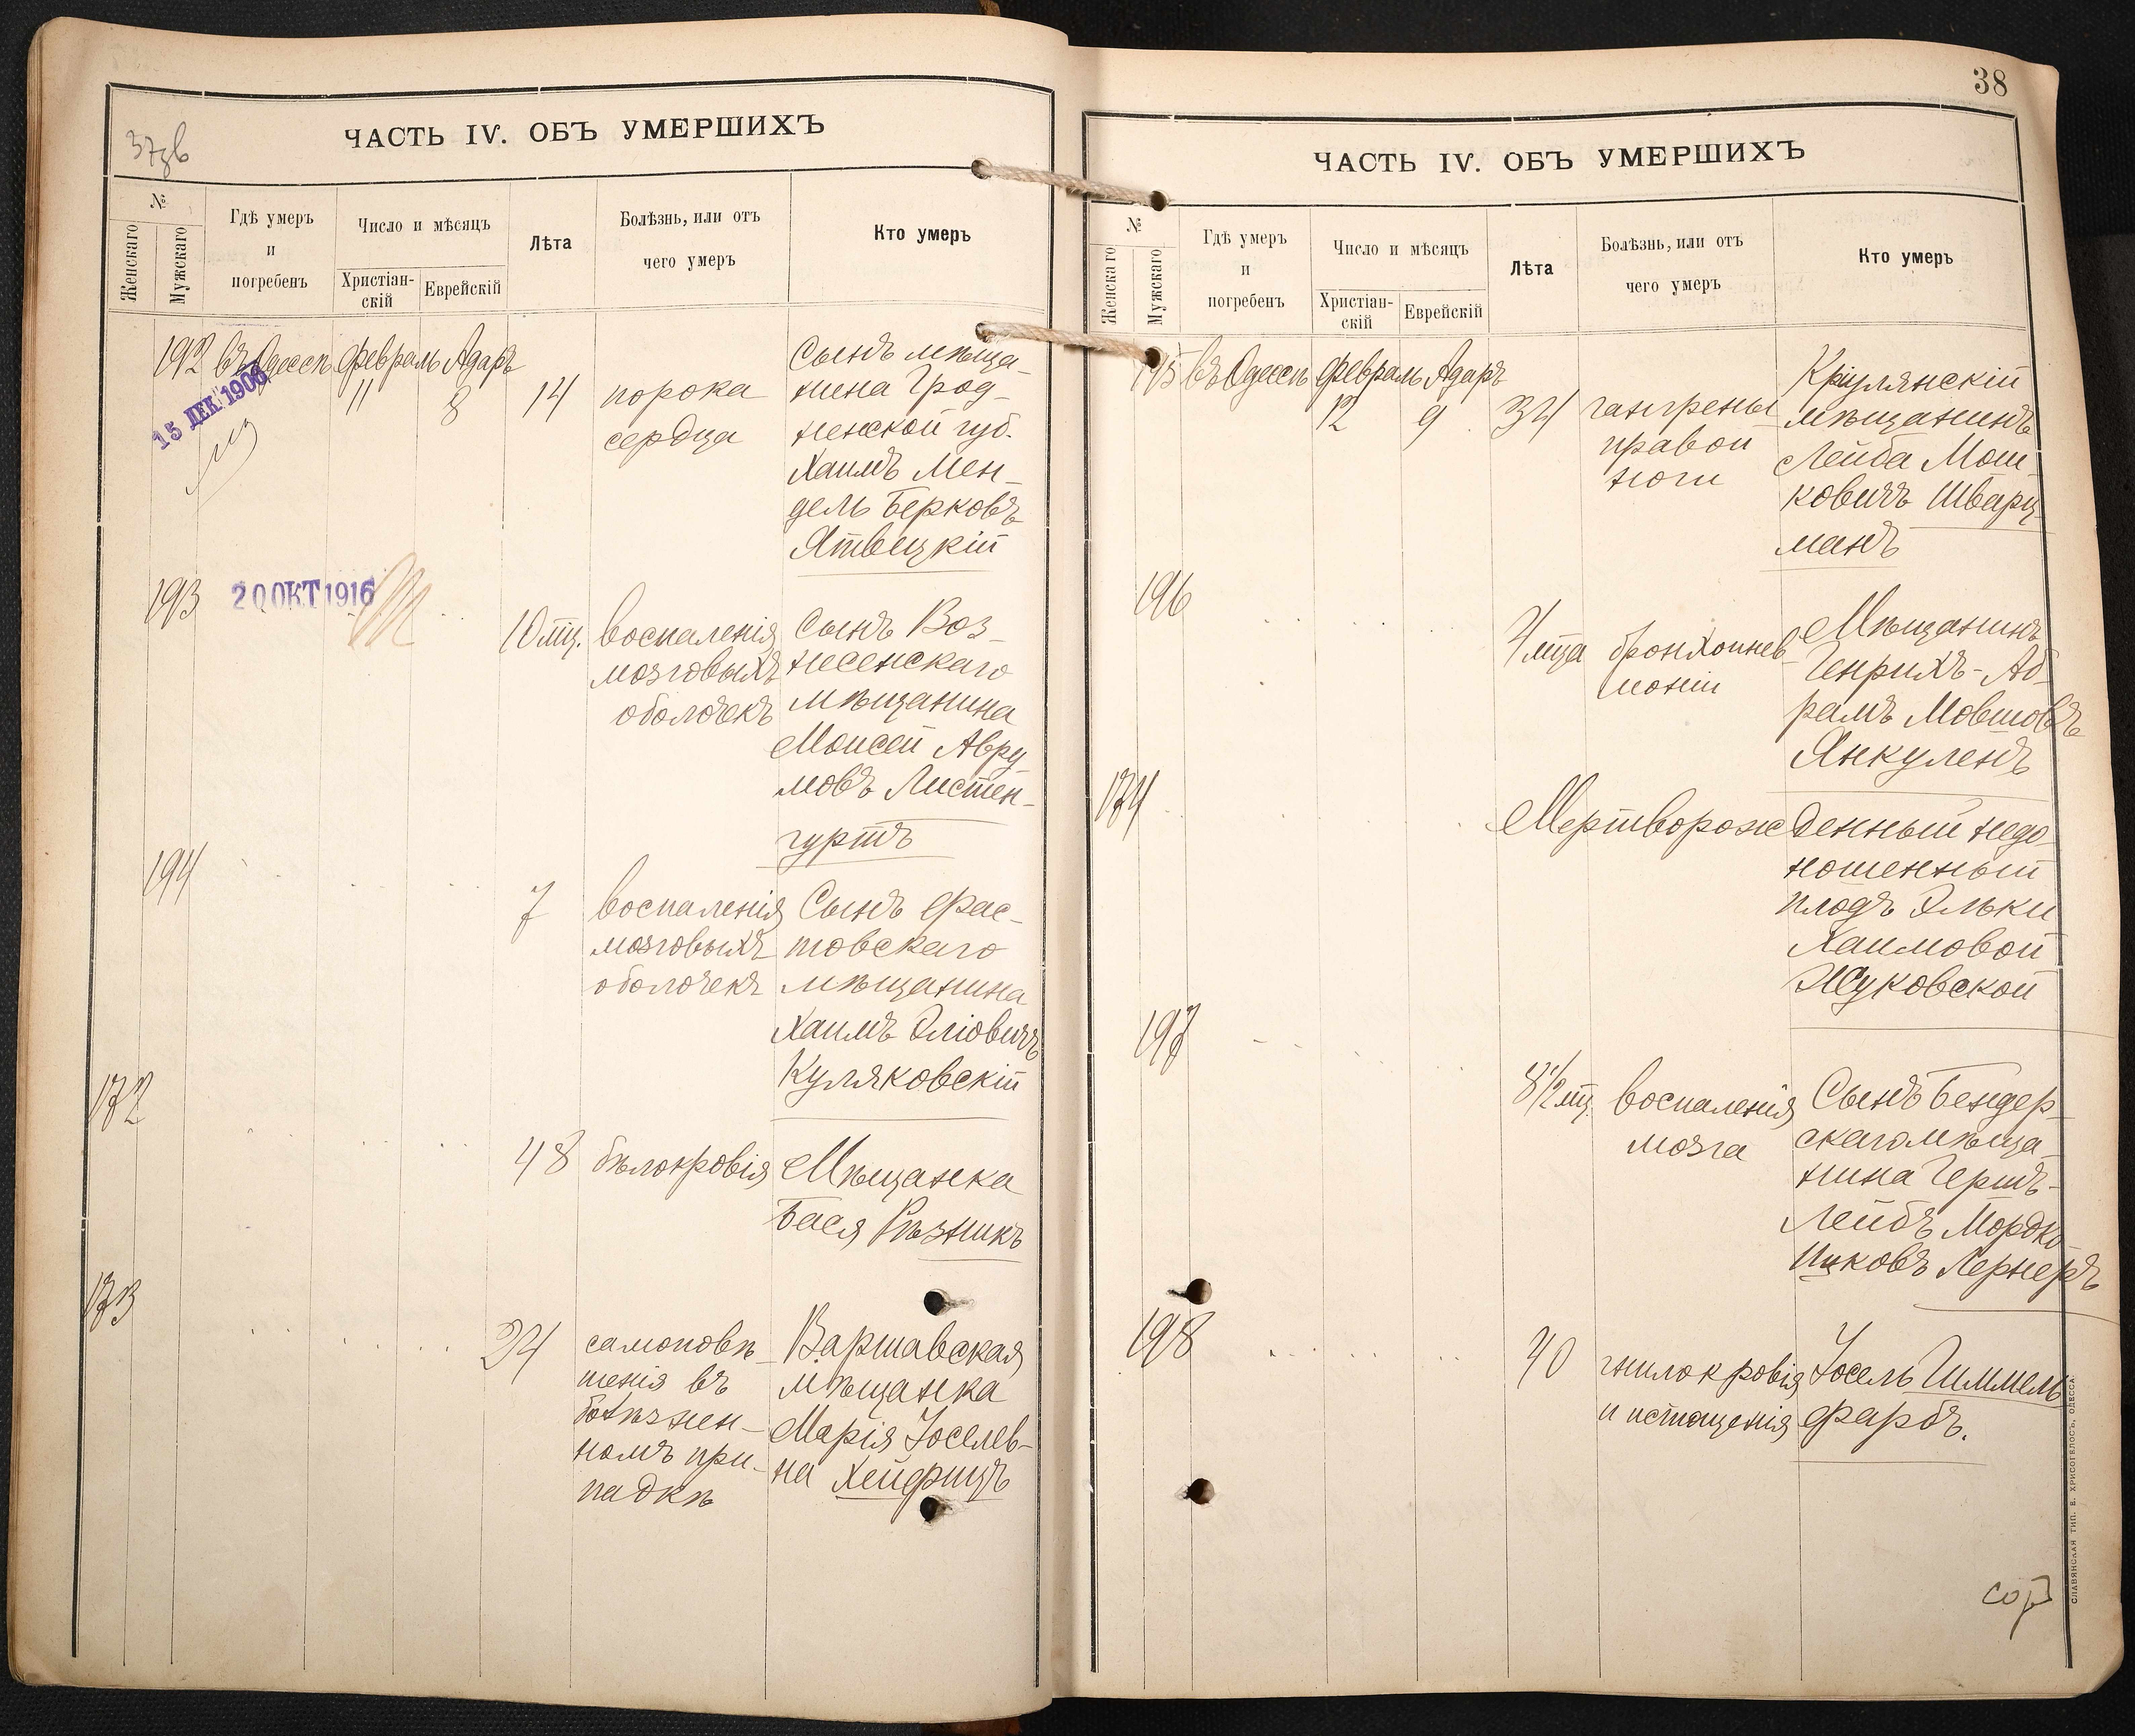 37зв
ЧАСТЬ IV. ОБЪ УМЕРШИХЪ
№
Женскаго
Мужскаго
Гдѣ умеръ
и
погребенъ
Число и мѣсяцъ
Христіан-
скій
Еврейскій
Лѣта
Болѣзнь, или отъ
чего умеръ
Кто умеръ
192 въ Одессѣ февраль Адаръ
11 8 14
15 ДЕК 1906
порока
сердца
Сынъ мѣща-
нина Грод-
ненской губ.
Хаимъ Мен-
дель Берковъ
Ятвецкій
193
20 ОКТ 1916
10 мц.
воспаленія
мозговыхъ
оболочекъ
Сынъ Воз-
несенскаго
мѣщанина
Моисей Авру
мовъ Листен-
гуртъ
194
7
воспаленія
мозговыхъ
оболочекъ
Сынъ Фас-
товскаго
мѣщанина
Хаимъ Эліовичъ
Куляковскій
172
48
бѣлокровія
Мѣщанка
Бася Рѣзникъ
173
24
самоповѣ-
шенія въ
болѣзнен-
номъ при-
падкѣ
Варшавская
мѣщанка
Марія Іоселев-
на Хейфицъ
38
ЧАСТЬ IV. ОБЪ УМЕРШИХЪ
№
Женскаго
Мужскаго
Гдѣ умеръ
и
погребенъ
Число и мѣсяцъ
Христіан-
скій
Еврейскій
Лѣта
Болѣзнь, или отъ
чего умеръ
Кто умеръ
195 въ Одессѣ февраль Адаръ
12 9 34
гангрены
правой
ноги
Кріулянскій
мѣщанинъ
Лейба Мош-
ковичъ Шварц-
манъ
196
4 мца
бронхопнев-
моніи
Мѣщанинъ
Генрихъ-Аб-
рамъ Мовшовъ
Янкулевъ
174
Мертворожденный недо-
ношенный
плодъ Эльки
Хаимовой
Жуковской
197
8 1/2 мц.
воспаленія
мозга
Сынъ Бендер-
скаго мѣща-
нина Гершъ-
Лейбъ Мордко-
Ицковъ Лернеръ
198
40
гнилокровія
и истощенія
Іосель Гиммель
фарбъ.
СЛАВЯНСКАЯ ТИП. Е. ХРИСОГЕЛОСЪ, ОДЕССА.